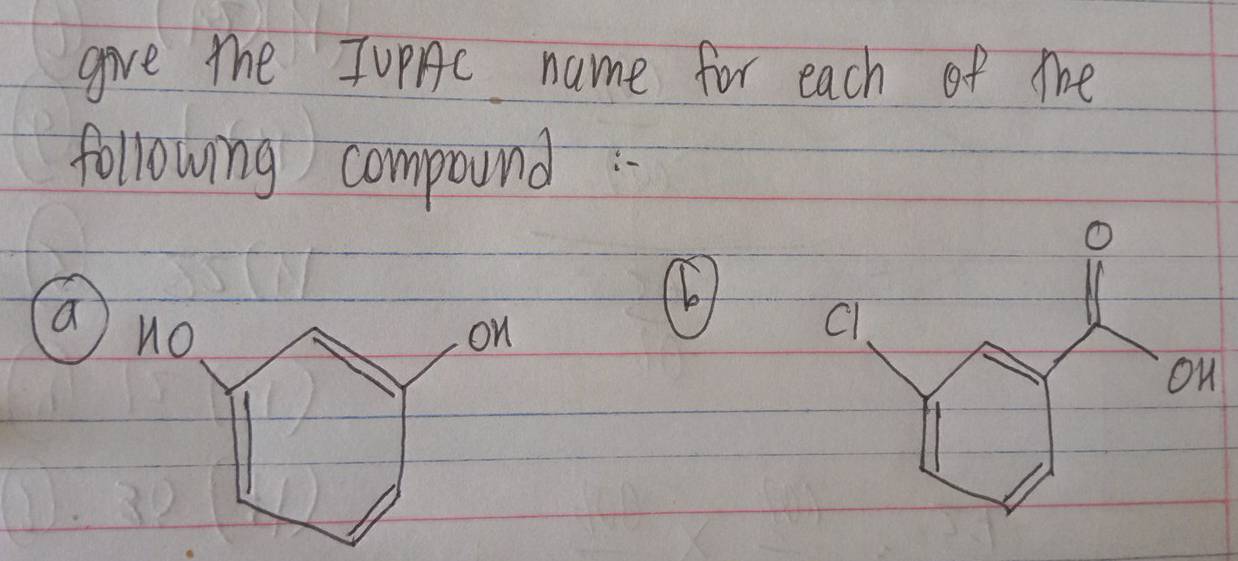 give the IUPAC name for each of the
following compound :-
a HO OH b Cl O OH